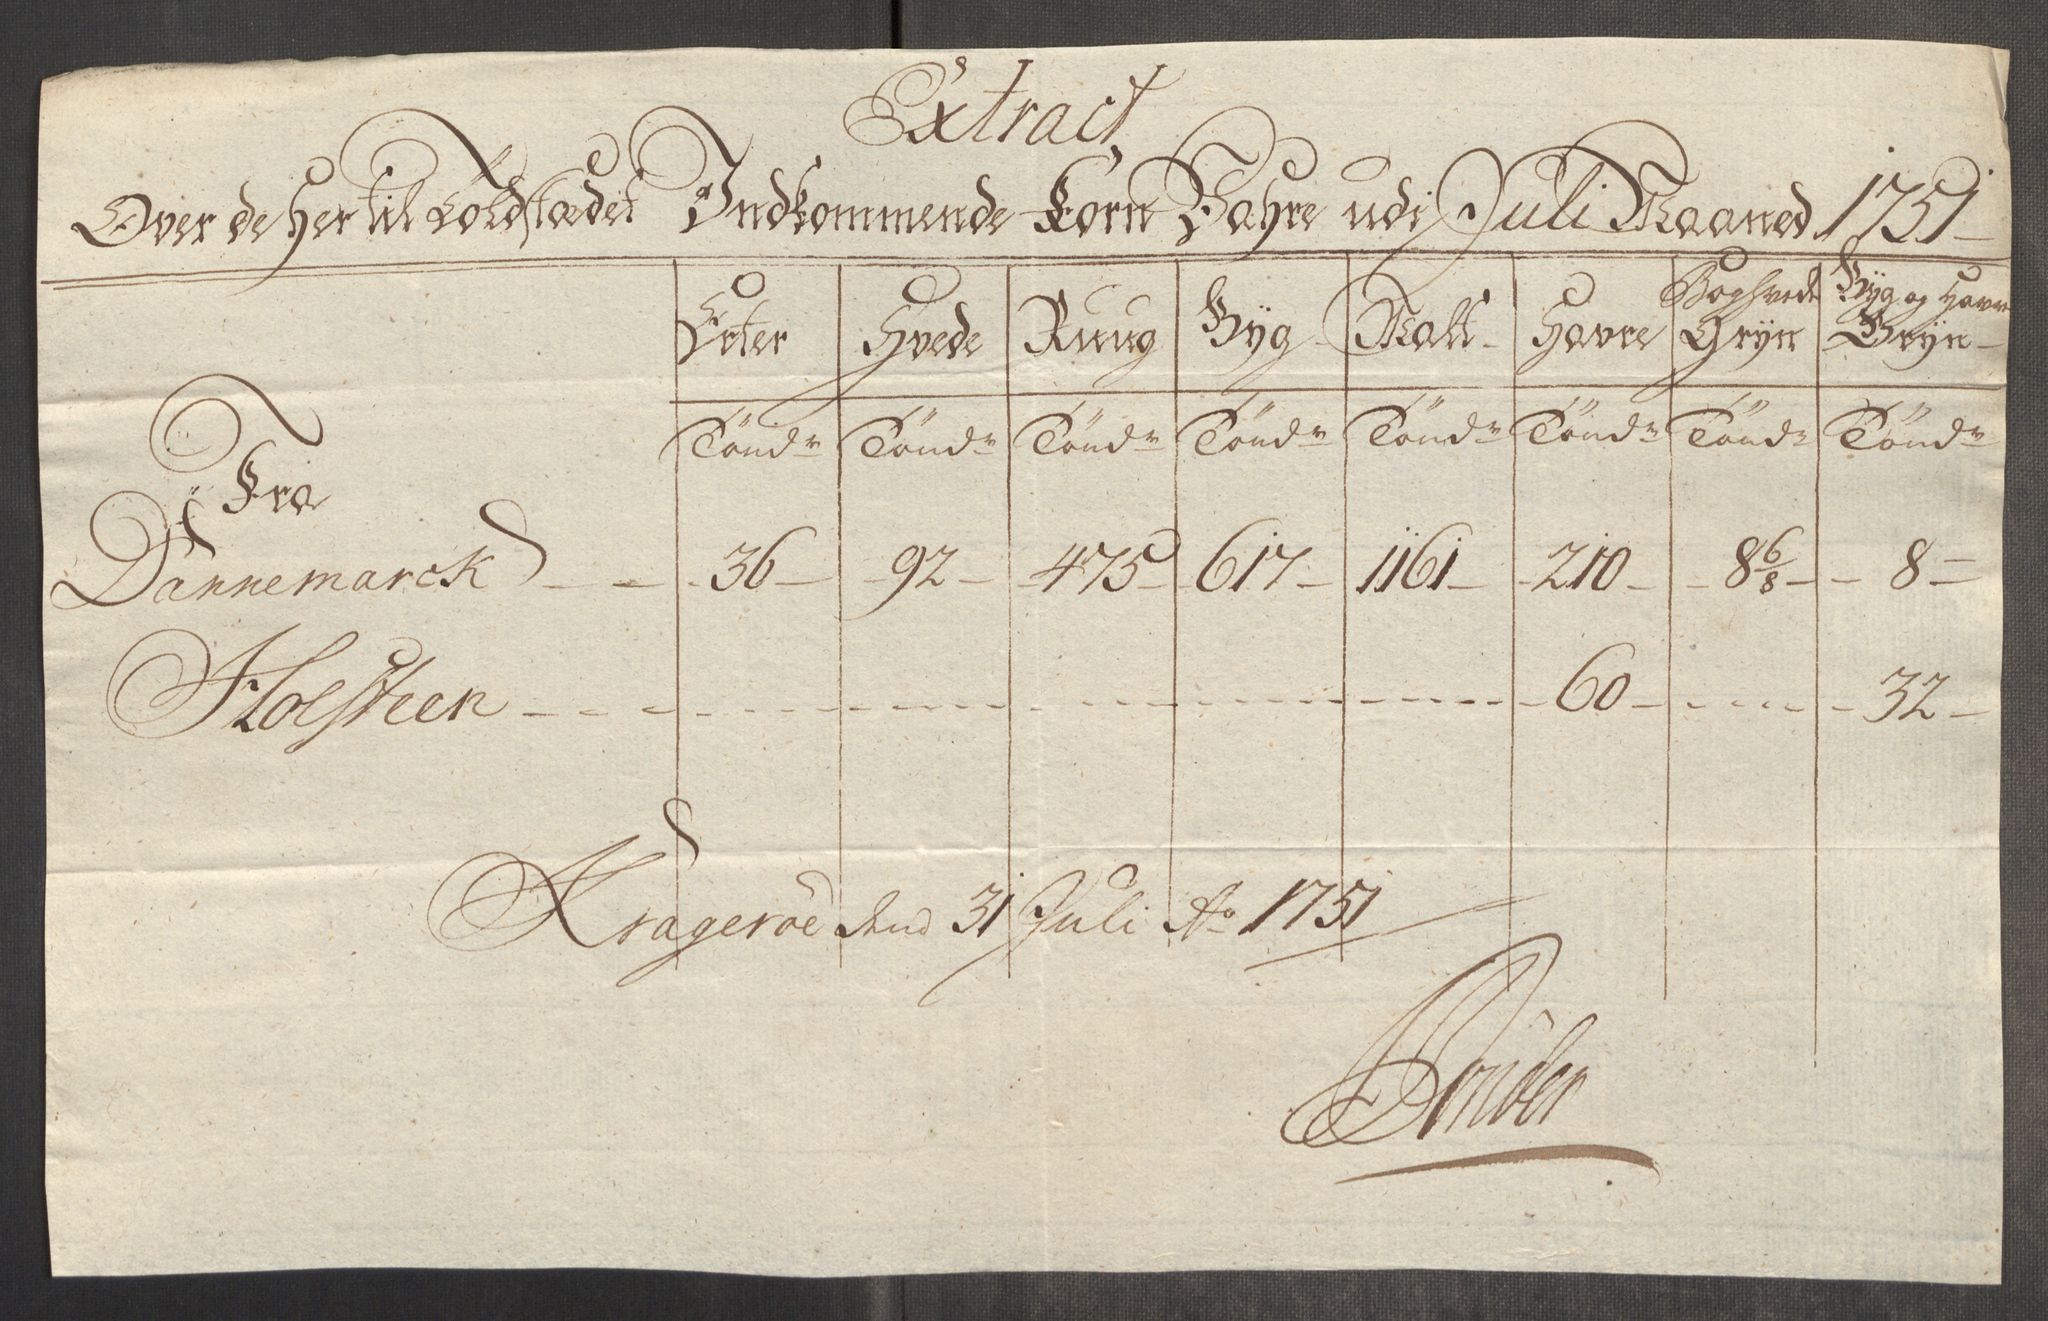 Extract
Over de Her til Toldstædet Indkommende Korn Vahre udi Juli Maaned 1751
Erter Hvede Ruug Byg Malt Havre Boghvede Gryn Byg og Havre Gryn
Tönd: Tönd: Tönd: Tönd: Tönd: Tönd: Tönd: Tönd:
Fra
Dannemarck 36 92 475 617 1161 210 8 6/8 8
Holsteen 60 32
Krageröe dend 31 Juli Ao 1751